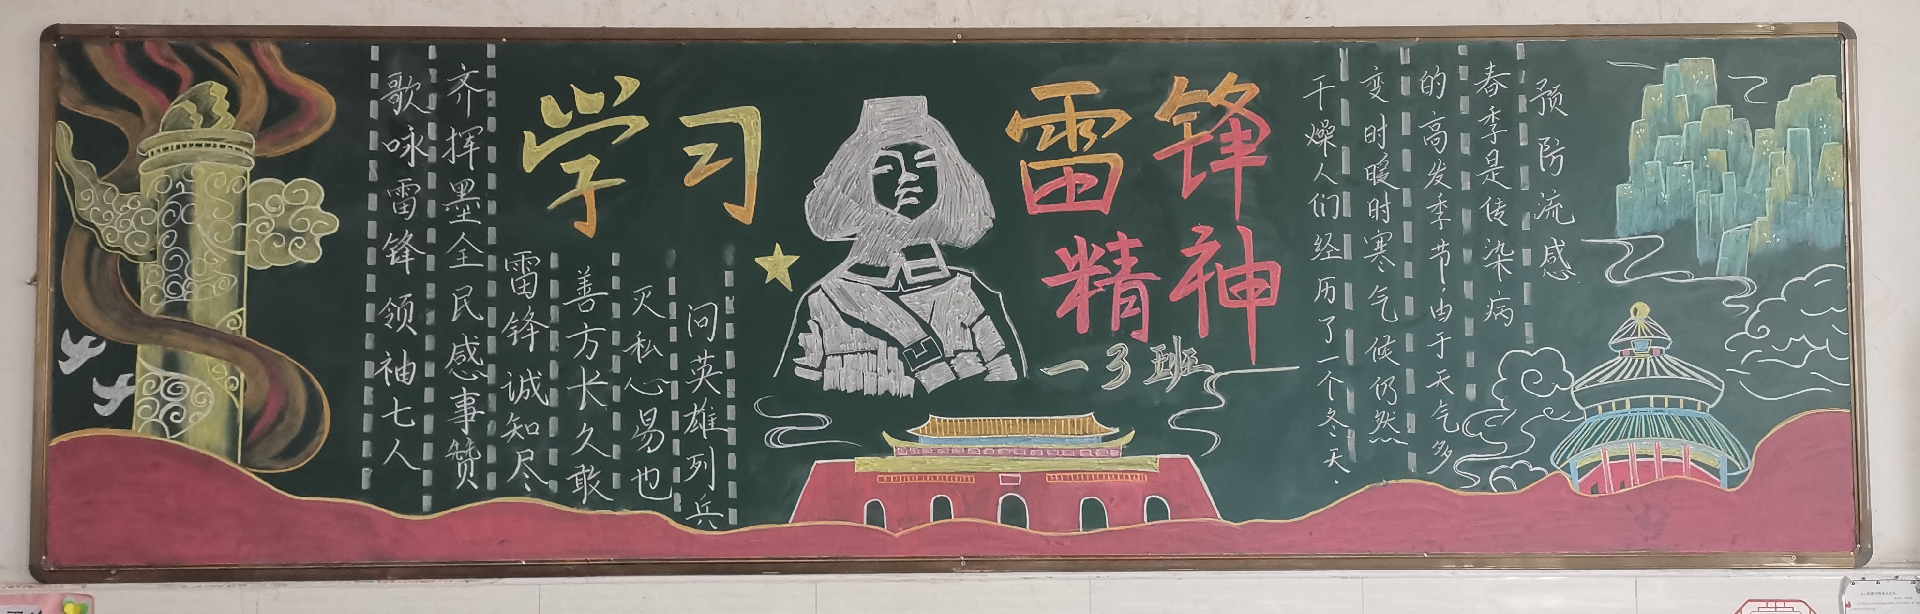 学习
雷锋
精神
一3班
歌咏雷锋领袖七人
齐挥墨全民感事赞
雷锋诚知尽
善方长久敢
灭私心易也
问英雄列兵
预防流感
春季是传染病
的高发季节由于天气多
变时暖时寒气候仍然
干燥人们经历了一个冬天.